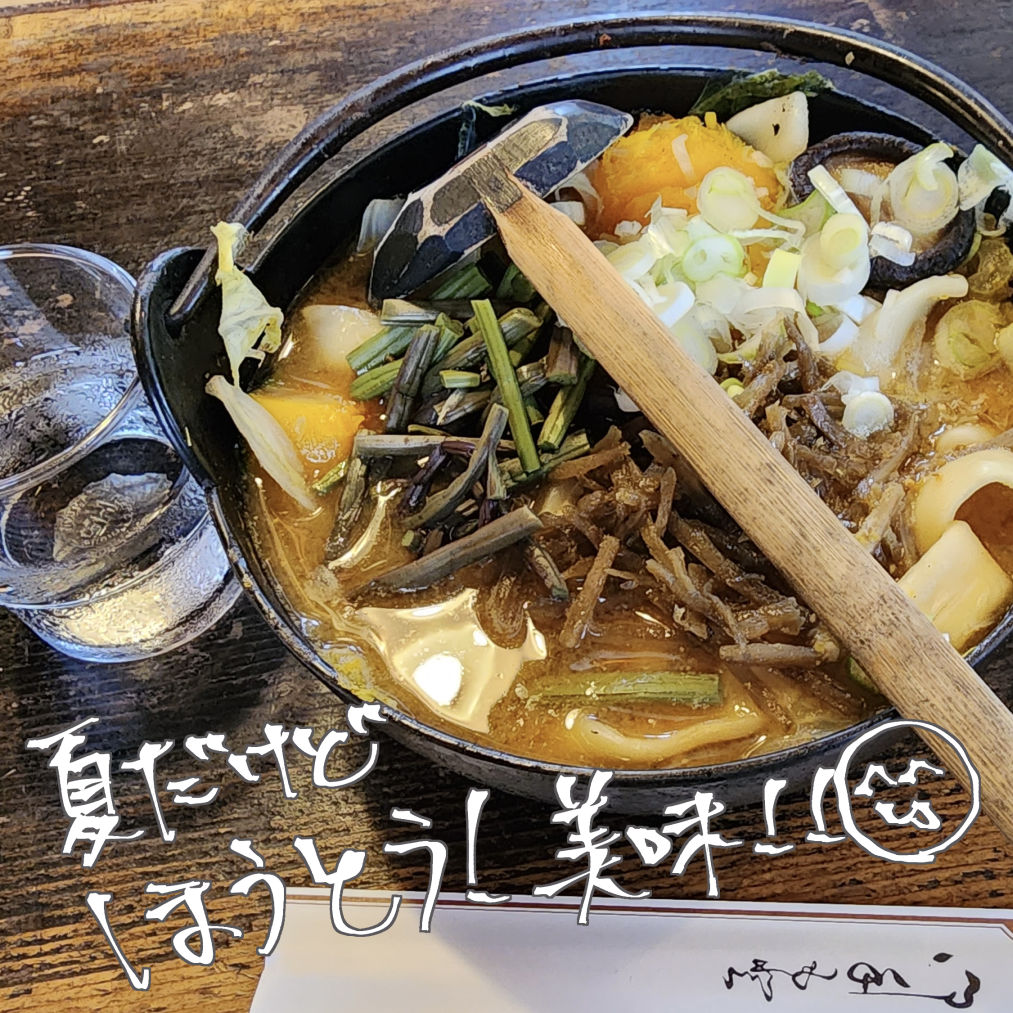 夏だけど
ほうとう!美味!!